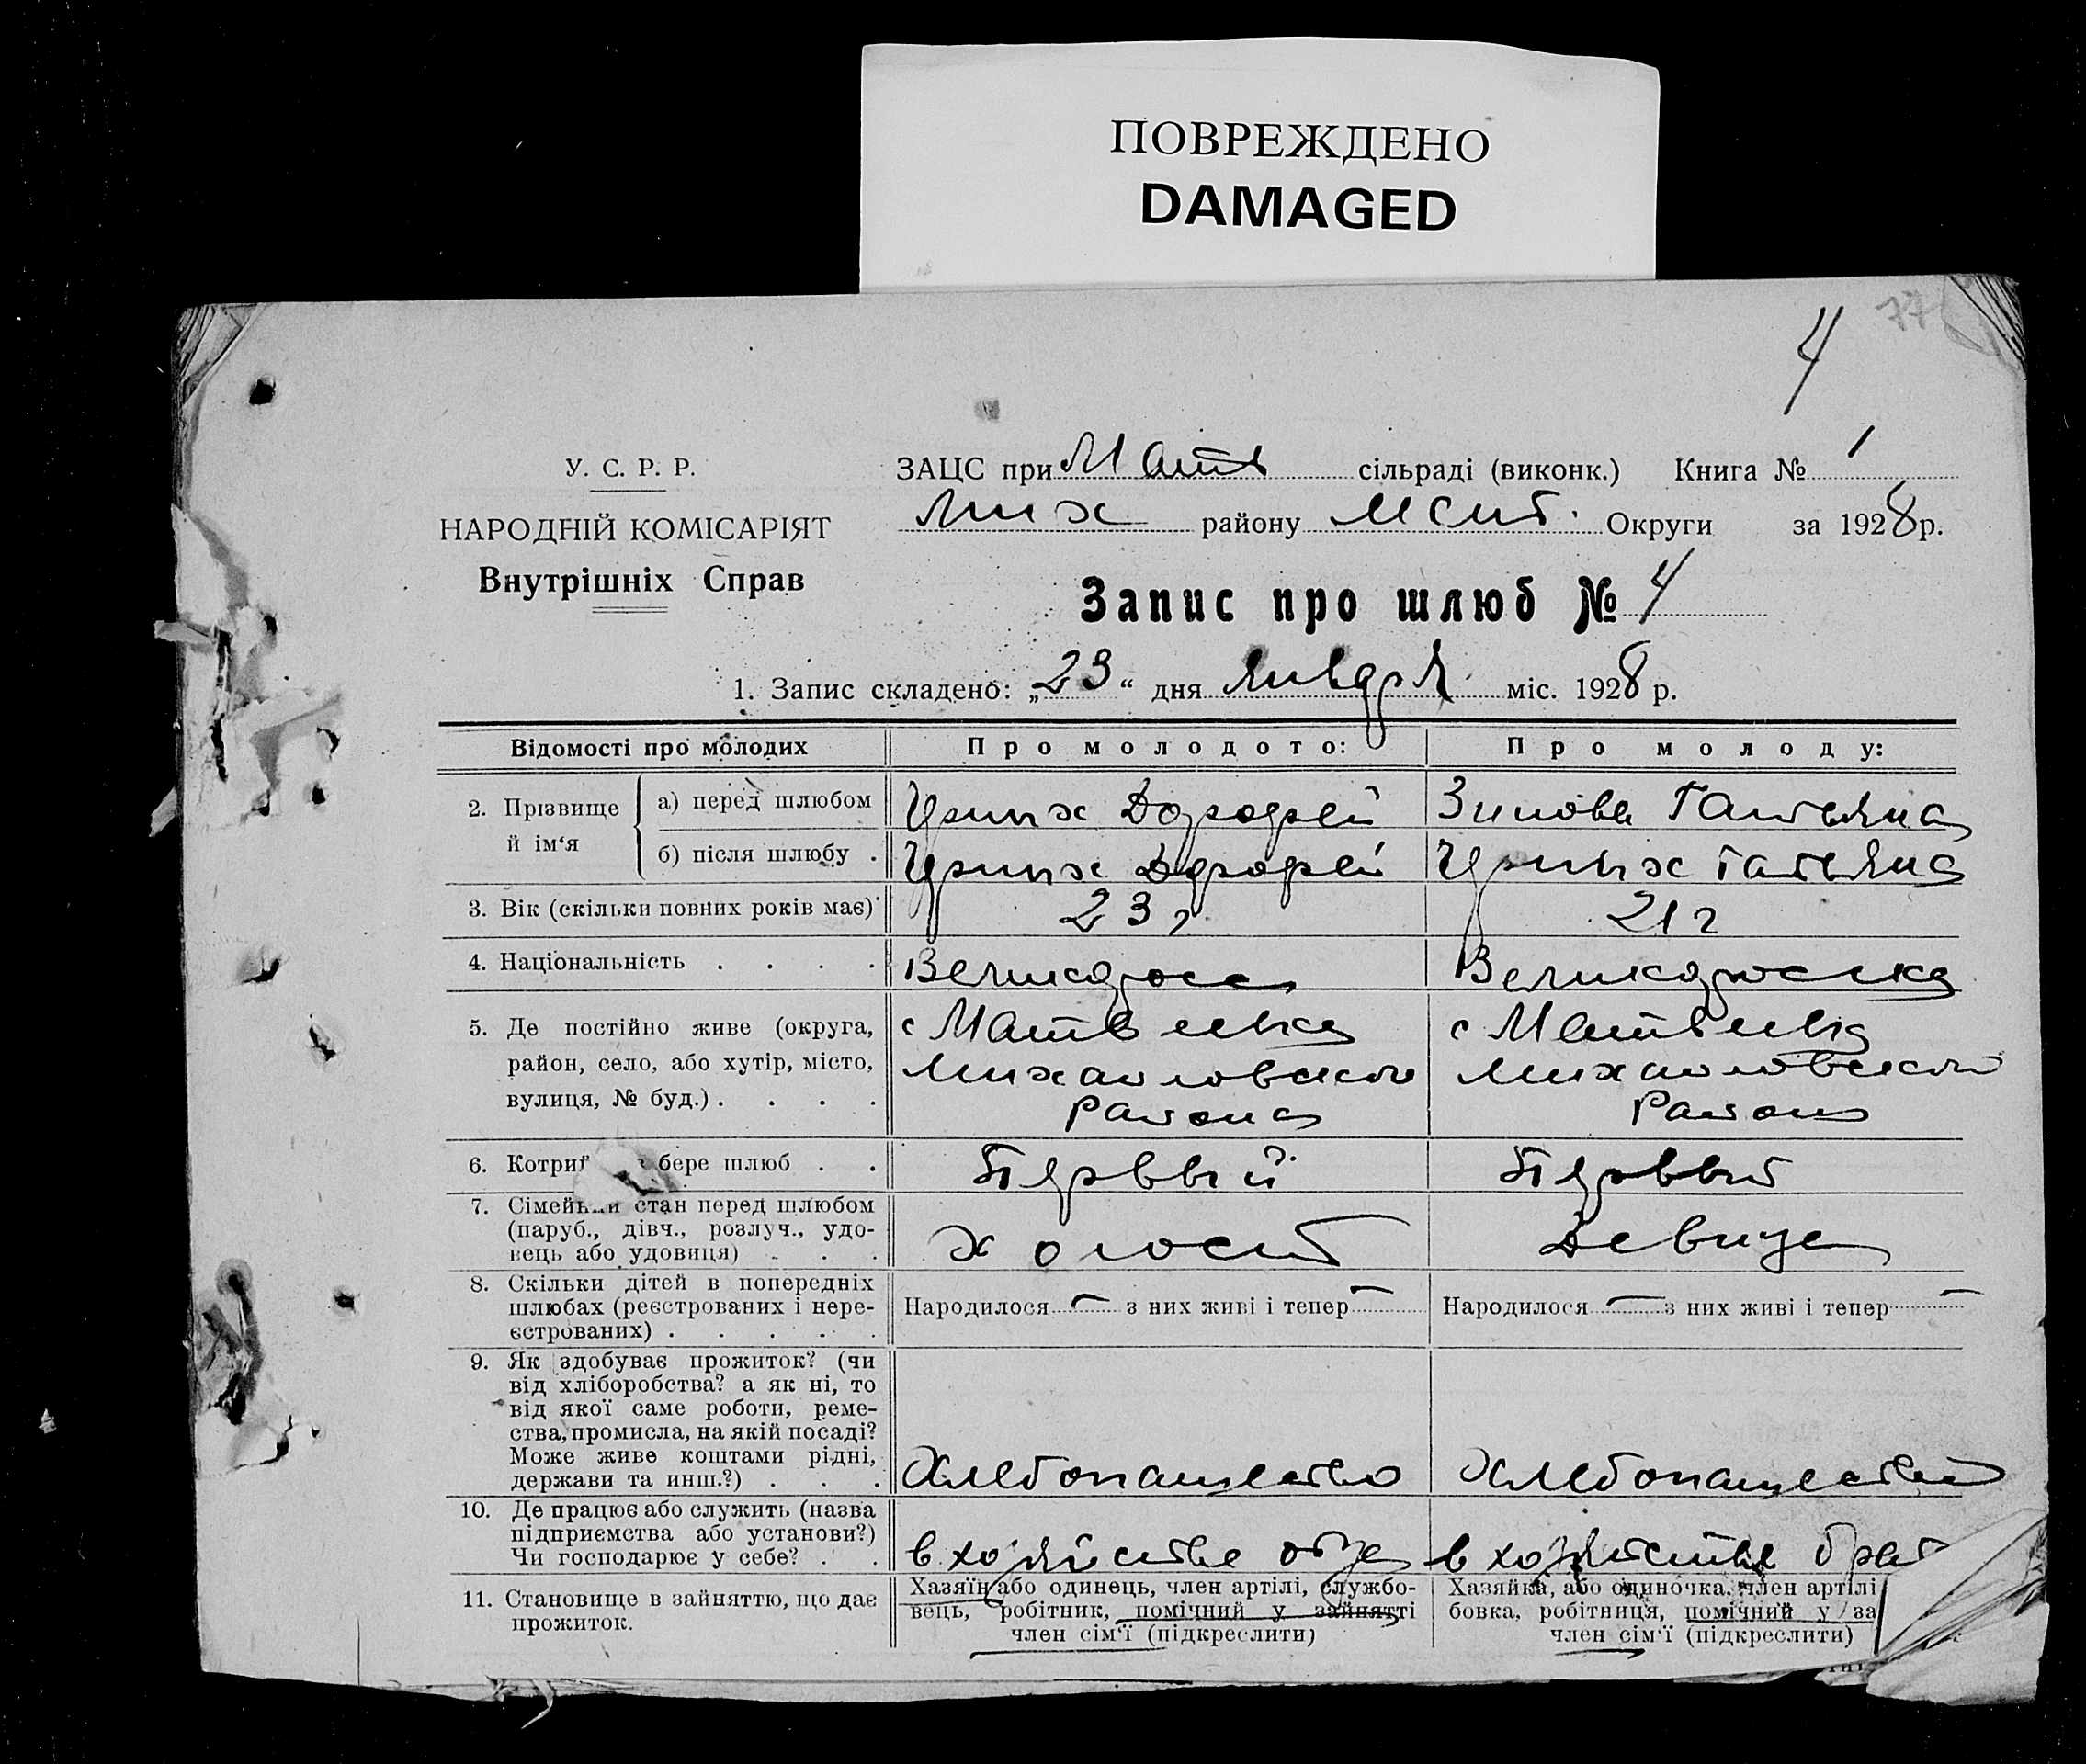 ПОВРЕЖДЕНО
DAMAGED
77
4
У. С. Р. Р.
НАРОДНІЙ КОМІСАРІЯТ
Внутрішніх Справ
ЗАЦС при Матв сільраді (виконк.) Книга № 1
Мих району Мелит. Округи за 1928 р.
Запис про шлюб № 4
1. Запис складено: „23“ дня Января міс. 1928 р.
Відомості про молодих Про молодого: Про молоду:
2. Прізвище й ім‘я
а) перед шлюбом Дорофей Зинова Татьяна
б) після шлюбу . Дорофей Татьяна
3. Вік (скільки повних років має) 23 г 21 г
4. Національність . . . . Великоросс Великоросска
5. Де постійно живе (округа, с Матвеевка с Матвеевка
район, село, або хутір, місто, Михайловского Михайловского
вулиця, № буд.) . . . . Района Района
6. Котрий бере шлюб . . Первый Первый
7. Сімейний стан перед шлюбом
(паруб., дівч., розлуч., удо-
вець або удовиця) . . . Холост Девица
8. Скільки дітей в попередніх
шлюбах (реєстрованих і нере- Народилося — з них живі і тепер — Народилося — з них живі і тепер —
єстрованих) . . . . .
9. Як здобуває прожиток? (чи
від хліборобства? а як ні, то
від якої саме роботи, реме-
ства, промисла, на якій посаді?
Може живе коштами рідні,
держави та инш.?) . . . Хлебопашество Хлебопашество
10. Де працює або служить (назва
підприємства або установи?)
Чи господарює у себе? . . в хозяйстве отца в хозяйстве брат
11. Становище в зайняттю, що дає
прожиток.
Хазяїн або одинець, член артілі, службо-
вець, робітник, помічний у зайнятті
член сім‘ї (підкреслити)
Хазяйка, або одиночка, член артілі
бовка, робітниця, помічний у за
член сім‘ї (підкреслити)